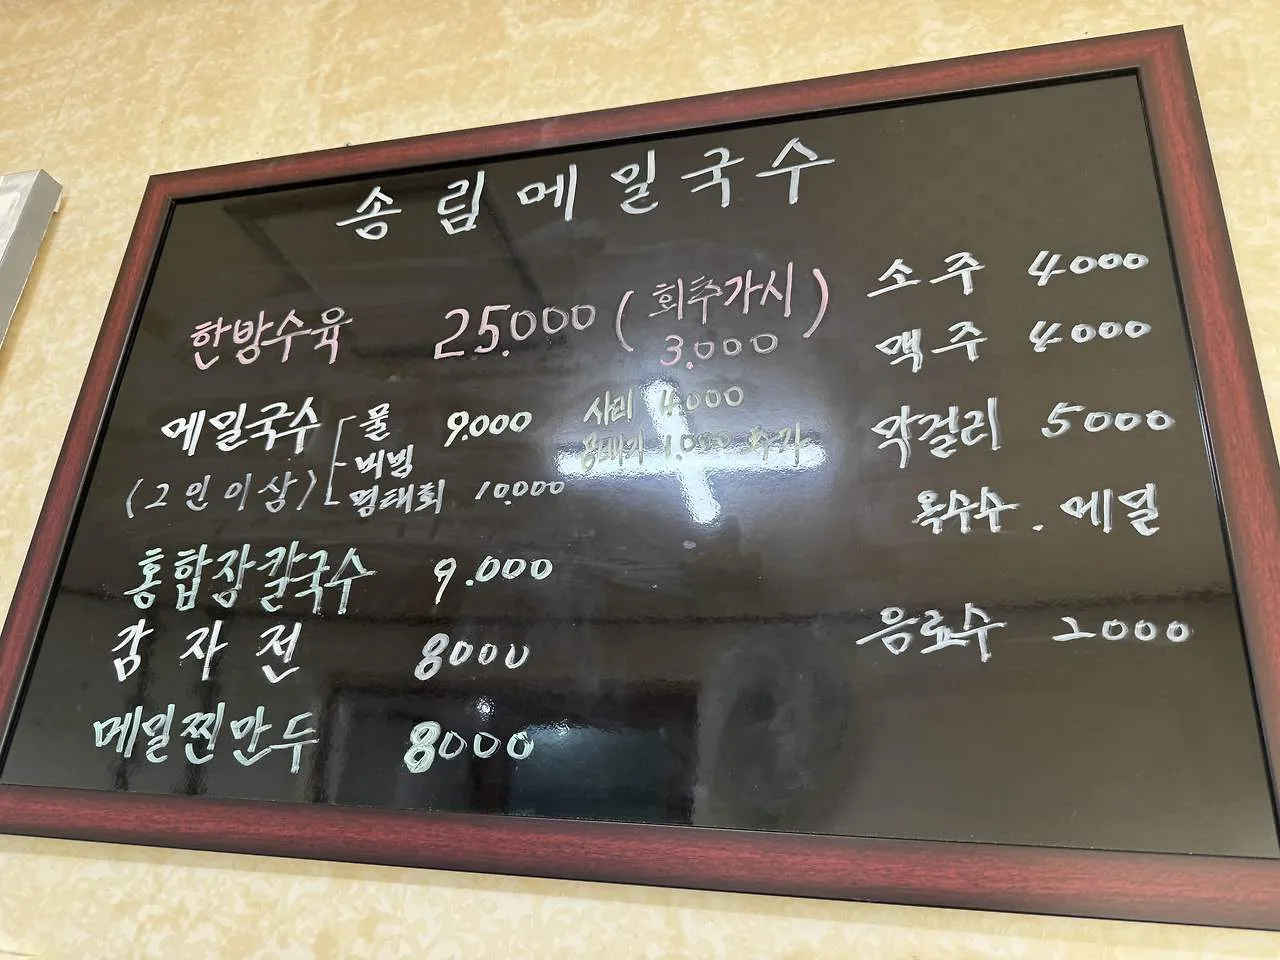 송림메밀국수
한방수육 25.000 (회추가시 3.000)
메밀국수 물 9.000
비빔
(2인이상) 명태회 10.000
사리 4.000
곱배기 1.000 추가
홍합장칼국수 9.000
감자전 8000
메밀찐만두 8000
소주 4000
맥주 4000
막걸리 5000
옥수수.메밀
음료수 2000